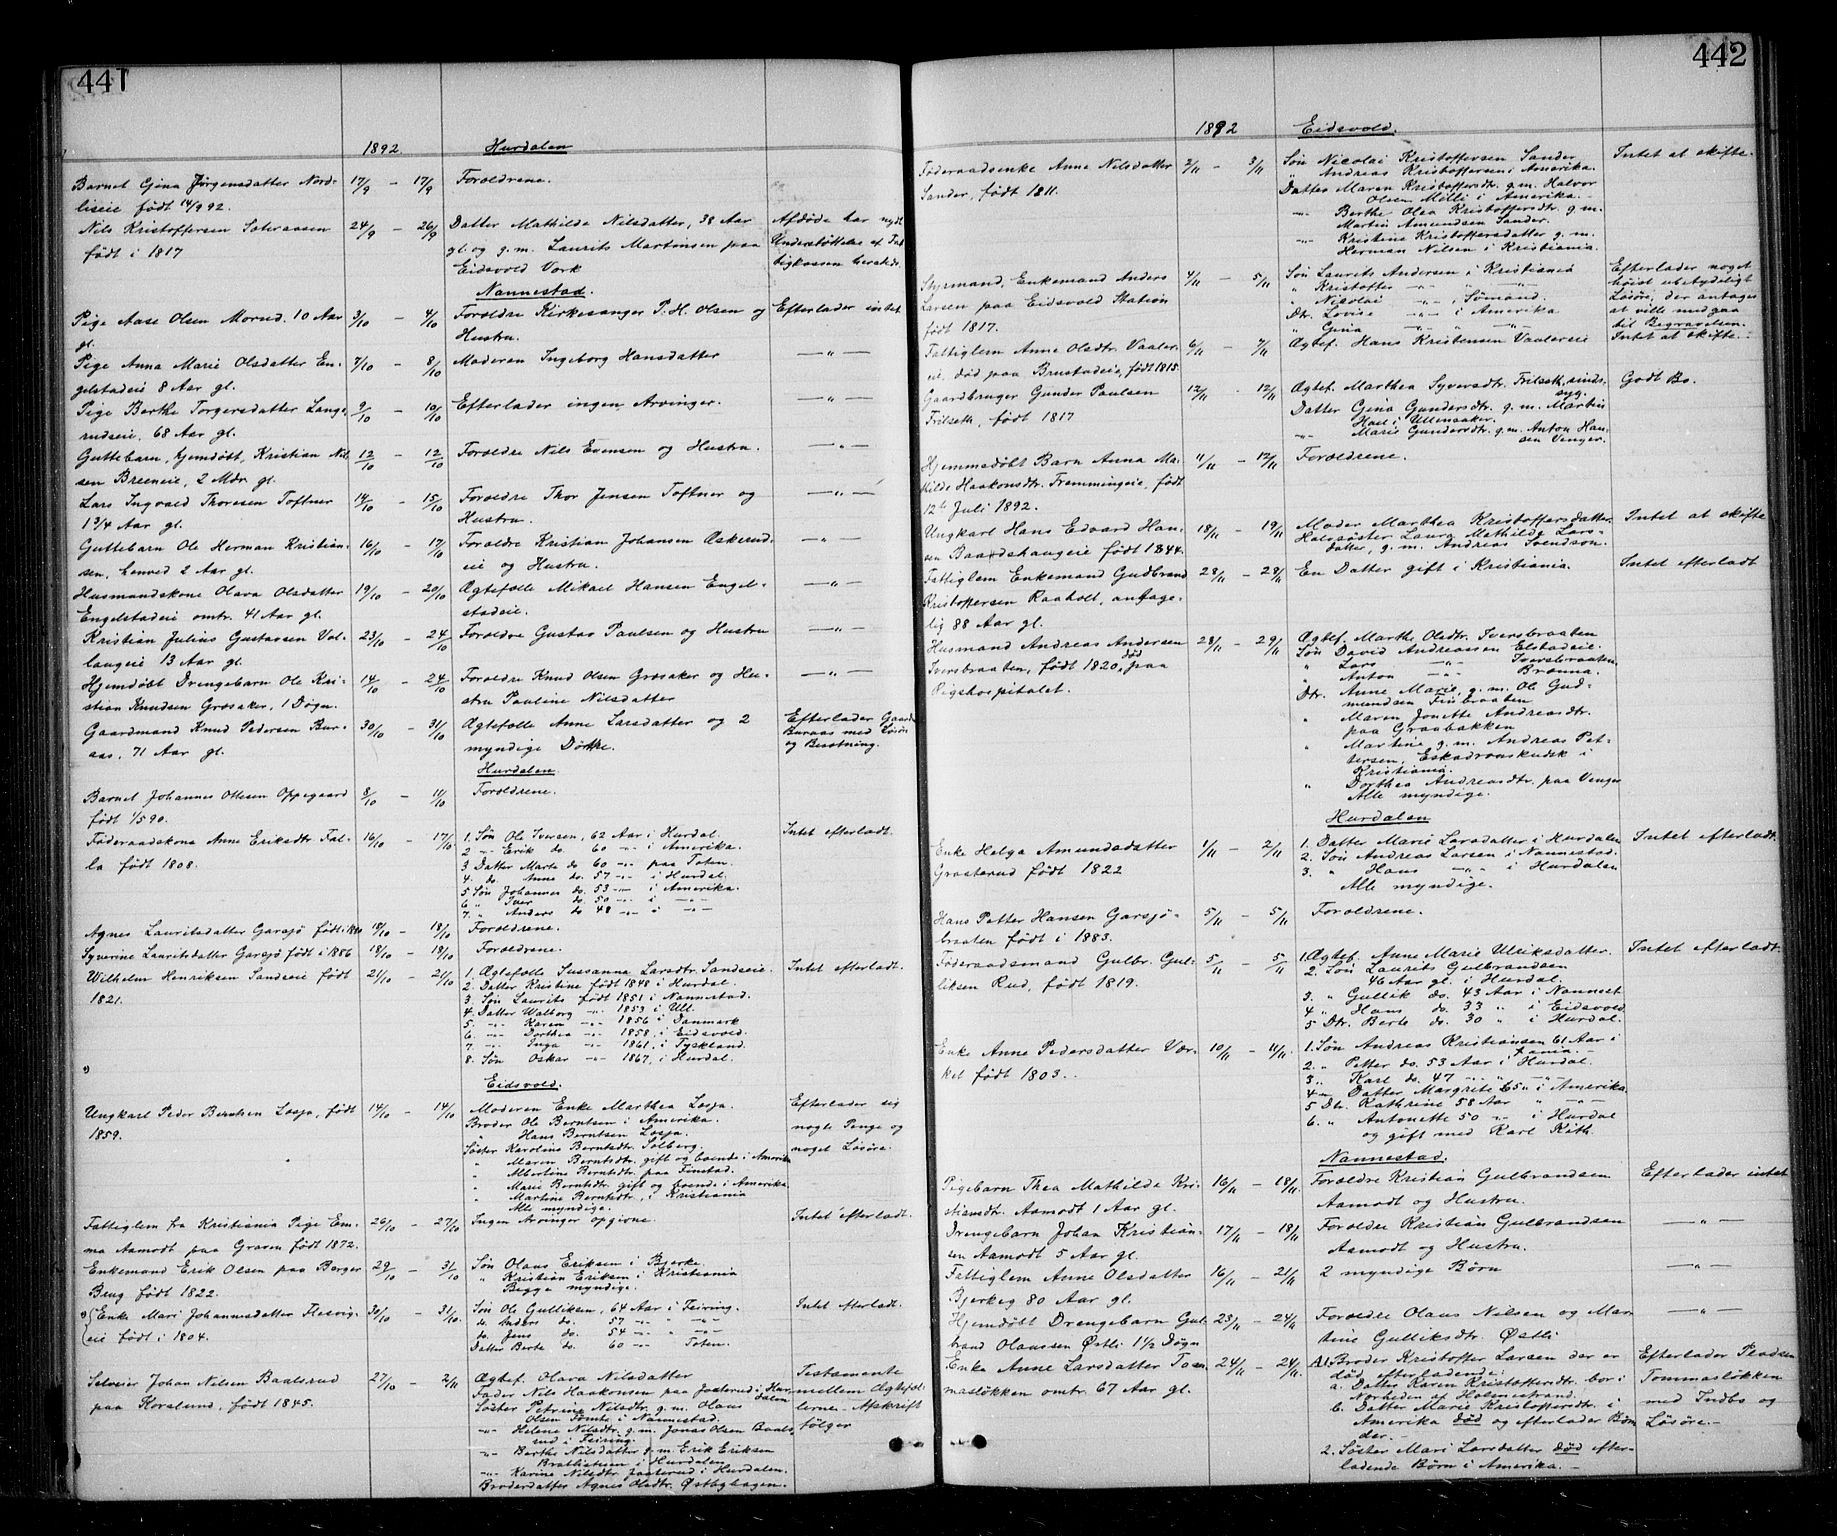 441
1892. Hurdalen
Barnet Gina Jørgensdatter Nord- 17/9 — 17/9 Forældrene.
liseie født 14/9 92.
Nils Kristoffersen 24/9 — 26/9 Datter Mathilde Nilsdatter, 38 Aar Afdøde har nydt
født i 1817 gl. og g. m. Laurits Martinsen paa Understøttelse af Fat-
Eidsvold Værk tigkassen hersteds.
Nannestad.
Pige Aase Olsen Morud. 10 Aar 3/10 — 4/10 Forældre Kirkesanger P. H. Olsen og Efterlader intet
gl. Hustru.
Pige Anna Marie Olsdatter En- 7/10 — 8/10 Moderen Ingeborg Hansdatter — „ —
gelstadeie 8 Aar gl.
Pige Berthe Torgersdatter Lange- 9/10 — 10/10 Efterlader ingen Arvinger. — „ —
rudseie, 68 Aar gl.
Guttebarn, hjemdøbt, Kristian Nil- 12/10 — 12/10 Forældre Nils Evensen og Hustru. — „ —
sen Breeneie, 2 Mdr. gl.
Lars Ingvald Thoresen Toftner 14/10 — 15/10 Forældre Thor Jensen Toftner og — „ —
1 3/4 Aar gl. Hustru.
Guttebarn Ole Herman Kristian- 16/10 — 17/10 Forældre Kristian Johansen Askerud- — „ —
sen, henved 2 Aar gl. eie og Hustru.
Husmandskone Olava Olsdatter 19/10 — 20/10 Ægtefælle Mikael Hansen Engel- — „ —
Engelstadeie omtr. 41 Aar gl. stadeie.
Kristian Julius Gustavsen Val- 23/10 — 24/10 Forældre Gustav Paulsen og Hustru — „ —
laugeie 13 Aar gl.
Hjemdøbt Drengebarn Ole Kri- 14/10 — 24/10 Forældre Knud Olsen Græsaker og Hu- — „ —
stian Knudsen Græsaker, 1 Døgn. stru Pauline Nilsdatter
Gaardmand Knud Pedersen Bur- 30/10 — 31/10 Ægtefælle Anne Larsdatter og 2 Efterlader Gaarden
aas, 71 Aar gl. myndige Døttre. Buraas med Løsøre
og Besætning.
Hurdalen
Barnet Johannes Ottesen Oppegaard 8/10 — 11/10 Forældrene.
født 1/5 90.
Føderaadskona Anne Eriksdtr Fal- 16/10 — 17/10 1. Søn Ole Iversen, 62 Aar i Hurdal. Intet efterladt.
la født 1808. 2 „ Erik do. 60 „ i Amerika.
3 Datter Marte do 60 „ paa Toten.
4. do. Anne do. 57 „ i Hurdal.
5 Søn Johannes do. 53 „ i Amerika.
6 „ Iver do. 50 „ i — „ —
7. „ Anders do 48 „ i — „ —
Agnes Lauritsdatter Garsjø født 18/10 — 18/10 Forældrene.
Syverine Lauritsdatter Garsjø født i 1886 18/10 — 18/10 Forældrene.
Wilhelm Henriksen Sandseie født 21/10 — 21/10 1. Ægtefælle Susanna Larsdtr. Sandseie. Intet efterladt.
1821. 2. Datter Kristine født 1848 i Hurdal.
3. Søn Laurits født 1851 i Nannestad.
4. Datter Walborg „ 1853 i Ull.
5. „ Karen „ 1856 i Danmark
6. „ Dorthea „ 1858. i Eidsvold.
7. „ Inga „ 1861. i Tyskland.
8. Søn Oskar „ 1867. i Hurdal.
Eidsvold.
Ungkarl Peder Berntsen Losja, født 14/10 — 14/10 Moderen Enke Marthea Losja. Efterlader sig
1859. Broder Ole Berntsen i Amerika. nogle Penge og
„ Hans Berntsen Losja. noget Løsøre.
Søster Karoline Berntsdtr. Solberg.
„ Maren Berntsdtr. gift og boende i Amerika
„ Albertine Berntsdtr. paa Finstad.
„ Marie Berntsdtr. gift og boende i Amerika.
„ Martine Berntsdtr. i Kristiania
Alle myndige.
Fattiglem fra Kristiania Pige Em- 26/10 — 27/10 Ingen Arvinger opgivne. Intet efterladt.
ma Aamodt paa født 1872.
Enkemand Erik Olsen paa Berger 29/10 — 31/10 Søn Olaus Eriksen i Bjerke.
Brug født 1822. „ Kristian Eriksen i Kristiania
Begge myndige.
Enke Mari Johannesdatter Flesvig- 30/10 — 31/10. Søn Ole Gulliksen, 64 Aar i Feiring. Intet efterladt.
eie født i 1804. do. Anders do. 57 „ „
do. Jens do. 54 „ „
Datter Berte do. 60 „ Toten.
Selveier Johan Nilsen Baalsrud 27/10 — 2/11 Ægtef. Olava Nilsdatter Testamente
paa Korslund, født 1845. Fader Nils Haakonsen paa Jasterud i Hur- mellem Ægtefæl-
dalen
Søster Petrine Nilsdtr. g. m. Olaus lerne. Afskrift
Olsen Tømte i Nannestad. følger
„ Helene Nilsdtr. g. m. Jonas Olsen Baals-
rud i Feiring.
„ Berthe Nilsdatter g. m. Erik Eriksen
i Hurdalen
„ Karine Nilsdtr. Jasterud i Hurdalen.
Broderdatter Agnes Olsdtr. Østbyhagen.
442
1892 Eidsvold.
Føderaadsenke Anne Nilsdatter 2/11 — 3/11 Søn Nicolai Kristoffersen Sander Intet at skifte.
Sander, født 1811. „ Andreas Kristoffersen i Amerika.
Datter Maren Kristoffersdtr. g. m. Halvor
Olsen Milli i Amerika.
„ Berthe Olea Kristoffersdtr. g. m.
Martin Amundsen Sander.
„ Kristine Kristoffersdatter g. m.
Herman Nilsen i Kristiania.
Styrmand, Enkemand Anders 4/11 — 5/11 Søn Laurits Andersen i Kristiania Efterlader noget
Larsen paa Eidsvold Station „ Kristoffer „ „ høist ubetydeligt
født 1817. „ Nicolai „ Sømand. Løsøre, der antages
Dtr. Lovise „ i Amerika at ville medgaa
„ Gina „ „ til Begravelsen.
Fattiglem Anne Olsdtr. Vaaler- 6/11 — 7/11 Ægtef. Hans Kristensen Vaalereie Intet at skifte.
eie, død paa Brustadeie, født 1815.
Gaardbruger Gunder Paulsen 12/11 — 12/11 Ægtef. Marthea Syversdtr. Trilseth, sinds- Godt Bo.
syg.
Trilseth, født 1817 Datter Gina Gundersdtr. g. m. Martin
i Ullensaker.
„ Marie Gundersdtr. g. m. Anton Han-
sen Venger.
Hjemmedøbt Barn Anna Ma- 11/11 — 12/11 Forældrene.
thilde Haakonsdtr. Fremmingeie, født
12te Juli 1892.
Ungkarl Hans Edvard Han- 18/11 — 19/11 Moder Marthea Kristoffersdatter. Intet at skifte
sen Baardshaugeie født 1844. Halvsøster Laura Mathilde Lars-
datter, g. m. Andreas Svendsen.
Fattiglem Enkemand Gudbrand 28/11 — 28/11 En Datter gift i Kristiania. Intet efterladt
Kristoffersen Raaholt, antage-
lig 88 Aar gl.
Husmand Andreas Andersen 28/11 — 29/11 Ægtef. Marthe Olsdtr. Iversbraaten
Iversbraaten, født 1820, død paa Søn David Andreassen Elstadeie.
Rigshospitalet. „ Lars „ Iversbraaten.
„ Anton „ Bræmna.
Dtr. Anne Marie, g. m. Ole Gud-
mundsen Finbraaten
„ Maren Jonette Andreasdtr.
paa Graabakken
„ Martine g. m. Andreas Pet-
tersen, Eskadronskudsk i
Kristiania.
„ Dorthea Andreasdtr. paa Venger
Alle myndige.
Hurdalen
Enke Helga Amundsdatter 1/11 — 2/11 1. Datter Marie Larsdatter i Hurdalen Intet efterladt.
Græsterud født 1822 2. Søn Andreas Larsen i Nannestad.
3. „ Hans „ i Hurdalen
Alle myndige.
Hans Petter Hansen Garsjø- 5/11 — 5/11 Forældrene.
braaten født i 1883.
Føderaadsmand Gulbr. Gul- 5/11 — 5/11 1. Ægtef. Anne Marie Ulriksdatter. Intet efterladt.
liksen Rud, født 1819. 2. Søn Laurits Gulbrandsen
46 Aar gl. i Hurdal.
3. „ Gullik do. 43 Aar i Nannest.
4 „ Hans do. 33 „ i Eidsvold
5 Dtr. Berte do. 30 „ i Hurdal.
Enke Anne Pedersdatter Vær- 10/11 — 11/11. 1. Søn Andreas Kristiansen 61 Aar i
ket født 1803. 2. „ Petter do. 53 Aar i Hurdal.
3 „ Karl do. 47 „ „
4 Datter Margrete 65 „ i Amerika.
5 Dtr. Kathrine 58 Aar „ „
6. „ Antonette 50 „ i Hurdal
og gift med Karl Kith.
Nannestad.
Pigebarn Thea Mathilde Kri- 16/11 — 18/11 Forældre Kristian Gulbrandsen Efterlader intet
stiansdtr. Aamodt 1 Aar gl. Aamodt og Hustru.
Drengebarn Johan Kristian- 17/11 — 18/11 Forældre Kristian Gulbrandsen — „ —
sen Aamodt 5 Aar gl. Aamodt og Hustru.
Fattiglem Anne Olsdatter 16/11 — 21/11 2 myndige Børn — „ —
Bjerkeg 80 Aar gl.
Hjemdøbt Drengebarn Gul- 23/11 — 24/11 Forældre Olaus Nilsen og Mar- — „ —
brand Olaussen Østli 1 1/2 Døgn tine Gulliksdtr. Østli
Enke Anne Larsdatter Tom- 24/11 — 24/11 1. Broder Kristoffer Larsen der er Efterlader Pladsen
masløkken omtr. 67 Aar gl. død efterladende. Tommasløkken
a. Datter Karen Kristoffersdtr. bor i med Indbo og
Nærheden af Holmestrand. Løsøre.
b. Datter Marie Kristoffersdtr. i
Amerika død og efterlader Børn
der.
2. Søster Mari Larsdatter død efter-
ladende Børn i Amerika.